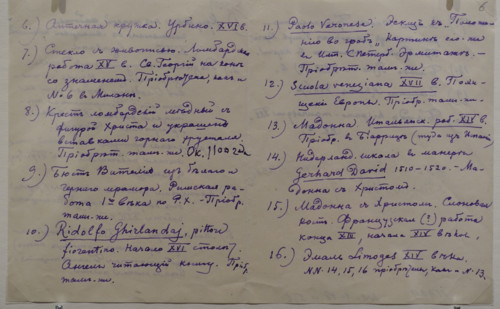 6
6.) Аптечная кружка. Урбино. XVI в.
7.) Стекло съ живописью. Ломбардск.
работа XV в. Св. Георгій на конѣ
со знаменем. Пріобрѣтена, какъ и
№ 6 в Миланѣ.
8.) Крестъ ломбардскій мѣдный съ
фигурой Христа и украшенъ
вставками горнаго хрусталя.
Пріобрѣт. тамъ-же. Ок. 1100 г.
9.) Бюстъ Вителлія, изъ бѣлаго и
чернаго мрамора. Римская ра-
бота 1го вѣка по Р. Х. - Пріобр.
тамъ-же.
10.) Ridolfo Ghirlandaj, pittore
fiorentino. Начало XVI столѣт.
Ангелъ читающій книгу. Пріоб.
тамъ-же.
11.) Paolo Veronese. Эскизъ съ "Положе-
нію во гробъ", картины его же
в Имп. С. Петерб. Эрмитажѣ. -
Пріобрѣт. тамъ-же.
12.) Scuola veneziana XVII в. Похи-
щеніе Европы. Пріобр. тамъ-же.
13.) Мадонна Итальянск. раб. XIV в.
Пріобр. в Біаррицѣ (туда изъ
14.) Нидерланд. школа в манерѣ
Gerhard David 1510-1520. - Ма-
донна съ Христомъ.
15.) Мадонна съ Христомъ. Слоновая
кость. Французская (?) работа
конца XIII, начала XIV вѣка.
16.) Эмаль Limoges XIV вѣка.
NN 14, 15, 16 пріобрѣтены, какъ N. 13.